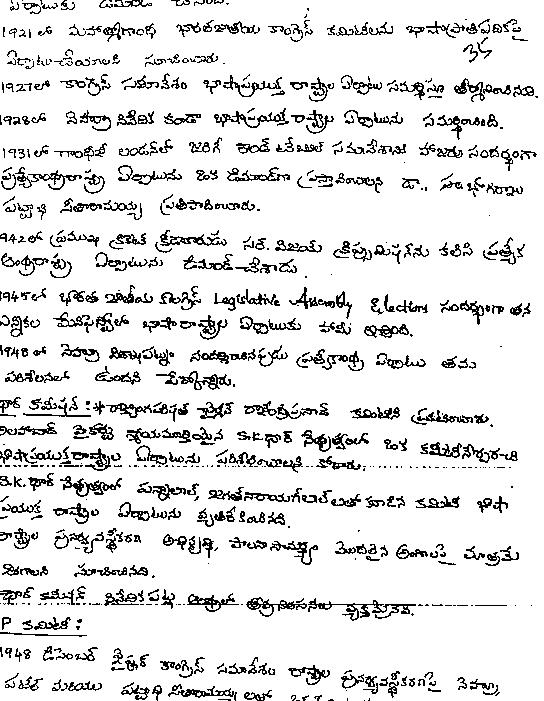 ఏర్పాటుకు డిమాండ్ చేసింది.
1921లో మహాత్మాగాంధీ భారతజాతీయ కాంగ్రెస్ కమిటీలను భాషాప్రాతిపదికపై
35
ఏర్పాటుచేయాలని సూచించారు.
1927లో కాంగ్రెస్ సమావేశం భాషాప్రయుక్త రాష్ట్రాల ఏర్పాటు సమర్థిస్తూ తీర్మానించినది.
1928లో నెహ్రూ నివేదిక కూడా భాషాప్రయుక్త రాష్ట్రాల ఏర్పాటును సమర్థించింది.
1931లో గాంధీజీ లండన్‌లో జరిగే రౌండ్ టేబుల్ సమావేశానికి హాజరు సందర్భంగా
ప్రత్యేకాంధ్రరాష్ట్ర ఏర్పాటును ఒక డిమాండ్‌గా ప్రస్తావించాలని డా.,
పట్టాభి సీతారామయ్య ప్రతిపాదించారు.
942లో ప్రముఖ క్రికెట్ క్రీడాకారుడు సర్. విజయ్ క్రిప్స్‌మిషన్‌ను కలిసి ప్రత్యేక
ఆంధ్రరాష్ట్ర ఏర్పాటును డిమాండ్-చేశాడు.
1945లో భారత జాతీయ కాంగ్రెస్ Legislative Assembly Elections సందర్భంగా తన
ఎన్నికల మేనిఫెస్టోలో భాషారాష్ట్రాల ఏర్పాటుకు హామీ ఇచ్చింది.
1948లో నెహ్రూ విశాఖపట్నం సందర్శించినప్పుడు ప్రత్యేకాంధ్ర ఏర్పాటు తమ
పరిశీలనలో ఉందని పేర్కొన్నారు.
థార్ కమిషన్ : * రాజ్యాంగపరిషత్ ఛైర్మన్ రాజేంద్రప్రసాద్ కమిటీని ప్రకటించారు.
అలహాబాద్ హైకోర్టు న్యాయమూర్తియైన S.K.థార్ నేతృత్వంలో ఒక కమిటీనేర్పరచి
భాషాప్రయుక్తరాష్ట్రాల ఏర్పాటును పరిశీలించాలని కోరారు.
S.K.థార్ నేతృత్వంలో పన్నాలాల్, జగత్‌నారాయణ్‌లాల్‌లతో కూడిన కమిటీ భాషా
ప్రయుక్త రాష్ట్రాల ఏర్పాటును వ్యతిరేకించినది.
రాష్ట్రాల పునర్వ్యవస్థీకరణ అభివృద్ధి, పాలనాసౌలభ్యం మొదలైన అంశాలపై మాత్రమే
జరగాలని సూచించినది.
థార్ కమిషన్ నివేదికపట్ల ఆంధ్రాలో తీవ్రనిరసనలు వ్యక్తమైనవి.
P కమిటీ :
1948 డిసెంబర్ జైపూర్ కాంగ్రెస్ సమావేశం రాష్ట్రాల పునర్వ్యవస్థీకరణపై నెహ్రూ,
పటేల్ మరియు పట్టాభి సీతారామయ్య లతో